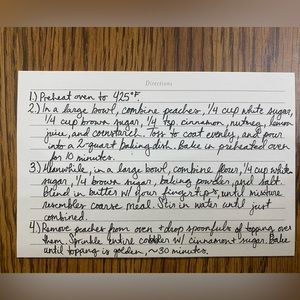 Directions
1) Preheat oven to 425°F.
2) In a large bowl, combine peaches, 1/4 cup white sugar,
1/4 cup brown sugar, 1/4 tsp. cinnamon, nutmeg, lemon
juice, and cornstarch. Toss to coat evenly, and pour
into a 2-quart baking dish. Bake in preheated oven
for 10 minutes.
3) Meanwhile, in a large bowl, combine flour, 1/4 cup white
sugar, 1/4 brown sugar, baking powder, and salt.
Blend in butter w/ your fingertips, until mixture
resembles coarse meal. Stir in water until just
combined.
4) Remove peaches from oven + drop spoonfuls of topping over
them. Sprinkle entire cobbler w/ cinnamon + sugar. Bake
until topping is golden, ~30 minutes.